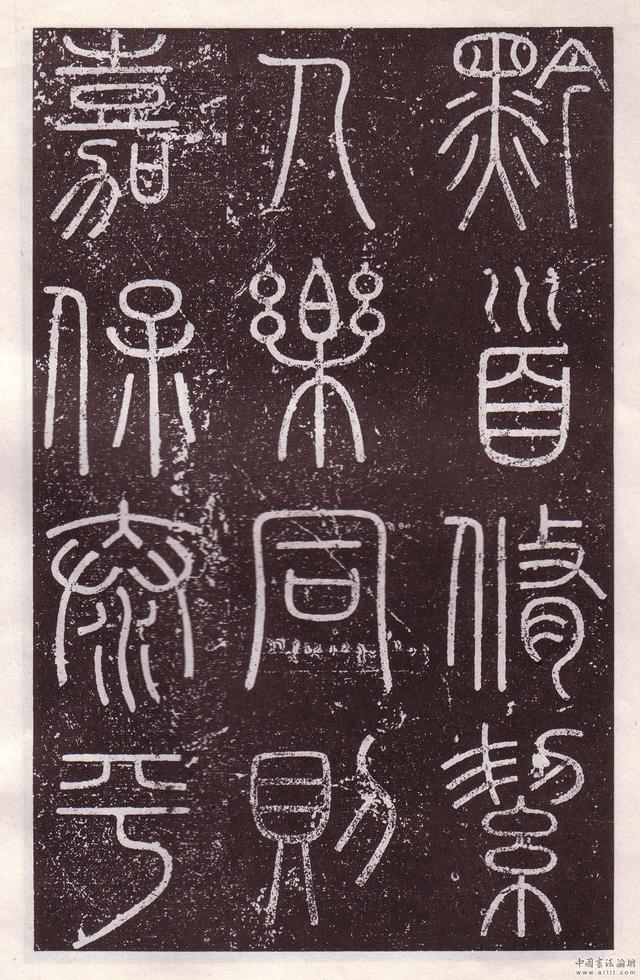 黔首脩絜
人樂同則
嘉保泰平
中國書法論壇
www.artit.com